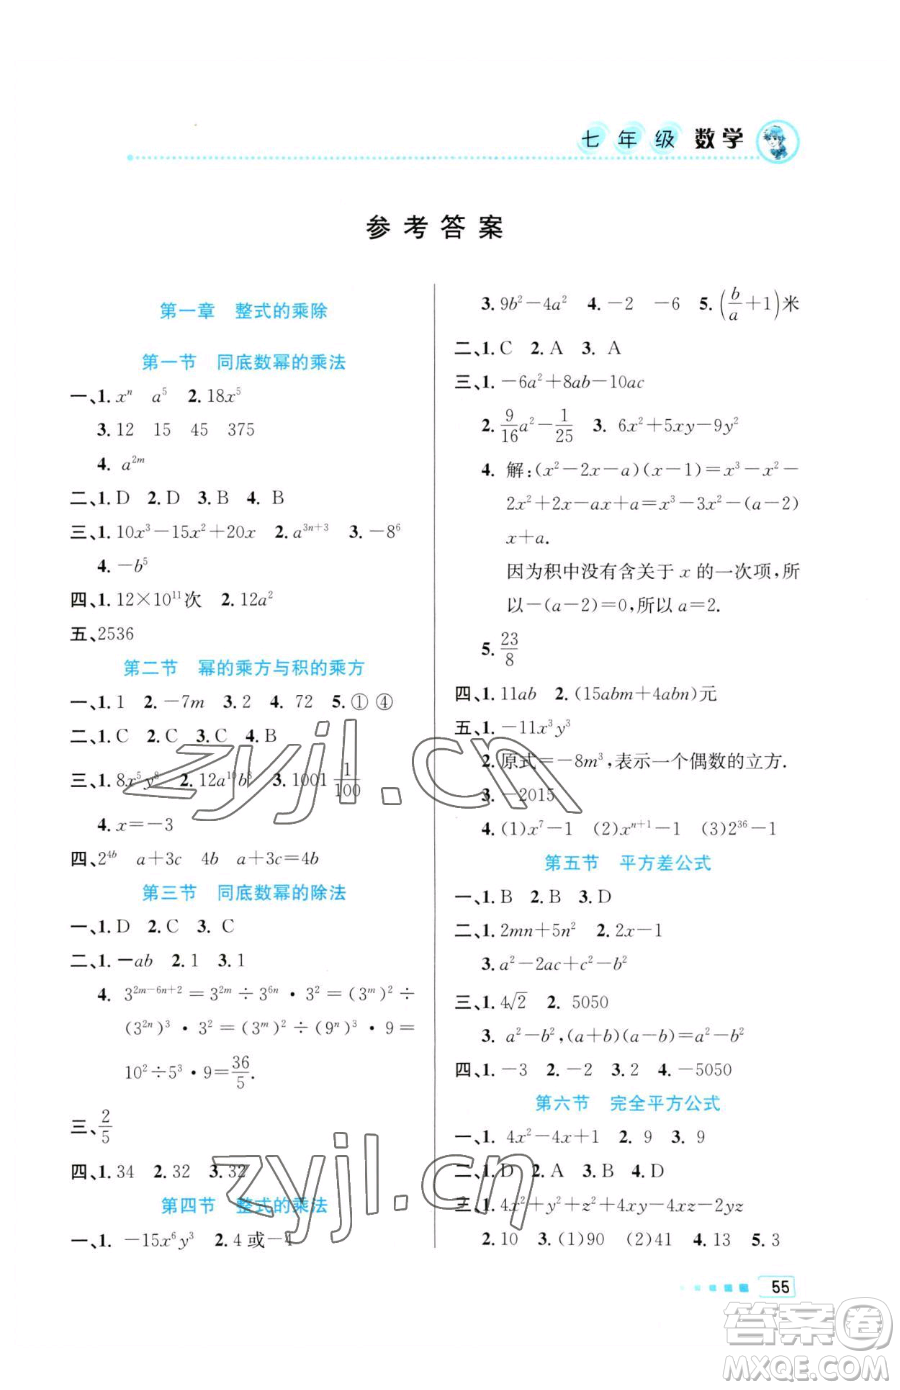 七年级 数学
参考答案
第一章 整式的乘除
第一节 同底数幂的乘法
一、1. xⁿ a⁵ 2. 18x⁵
3. 12 15 45 375
4. a²ᵐ
二、1. D 2. D 3. B 4. B
三、1. 10x³-15x²+20x 2. a³ⁿ⁺³ 3. -8⁶
4. -b⁵
四、1. 12×10¹¹次 2. 12a²
五、2536
第二节 幂的乘方与积的乘方
一、1. 1 2. -7m 3. 2 4. 72 5. ① ④
二、1. C 2. C 3. C 4. B
三、1. 8x⁵y⁸ 2. 12a¹⁰b⁵ 3. 1001 1/100
4. x=-3
四、2⁴ᵇ a+3c 4b a+3c=4b
第三节 同底数幂的除法
一、1. D 2. C 3. C
二、1. -ab 2. 1 3. 1
4. 3²ᵐ⁻⁶ⁿ⁺²=3²ᵐ÷3⁶ⁿ·3²=(3ᵐ)²÷
(3²ⁿ)³·3²=(3ᵐ)²÷(9ⁿ)³·9=
10²÷5³·9=36/5.
三、2/5
四、1. 34 2. 32 3. 32
第四节 整式的乘法
一、1. -15x⁶y³ 2. 4或-4
3. 9b²-4a² 4. -2 -6 5. (b/a+1)米
二、1. C 2. A 3. A
三、1. -6a²+8ab-10ac
2. 9/16a²-1/25 3. 6x²+5xy-9y²
4. 解:(x²-2x-a)(x-1)=x³-x²-
2x²+2x-ax+a=x³-3x²-(a-2)
x+a.
因为积中没有含关于 x 的一次项,所
以-(a-2)=0,所以 a=2.
5. 23/8
四、1. 11ab 2. (15abm+4abn)元
五、1. -11x³y³
2. 原式=-8m³,表示一个偶数的立方.
3. -2015
4. (1)x⁷-1 (2)xⁿ⁺¹-1 (3)2³⁶-1
第五节 平方差公式
一、1. B 2. B 3. D
二、1. 2mn+5n² 2. x-1
3. a²-2ac+c²-b²
三、1. 4√2 2. 5050
3. a²-b²,(a+b)(a-b)=a²-b²
四、1. -3 2. -2 3. 2 4. -5050
第六节 完全平方公式
一、1. 4x²-4x+1 2. 9 3. 9
二、1. D 2. A 3. B 4. D
三、1. 4x²+y²+z²+4xy-4xz-2yz
2. 10 3. (1)90 (2)41 4. 13 5. 3
55
zyjl.cn
zyjl.cn
答案圈
MXQE.COM